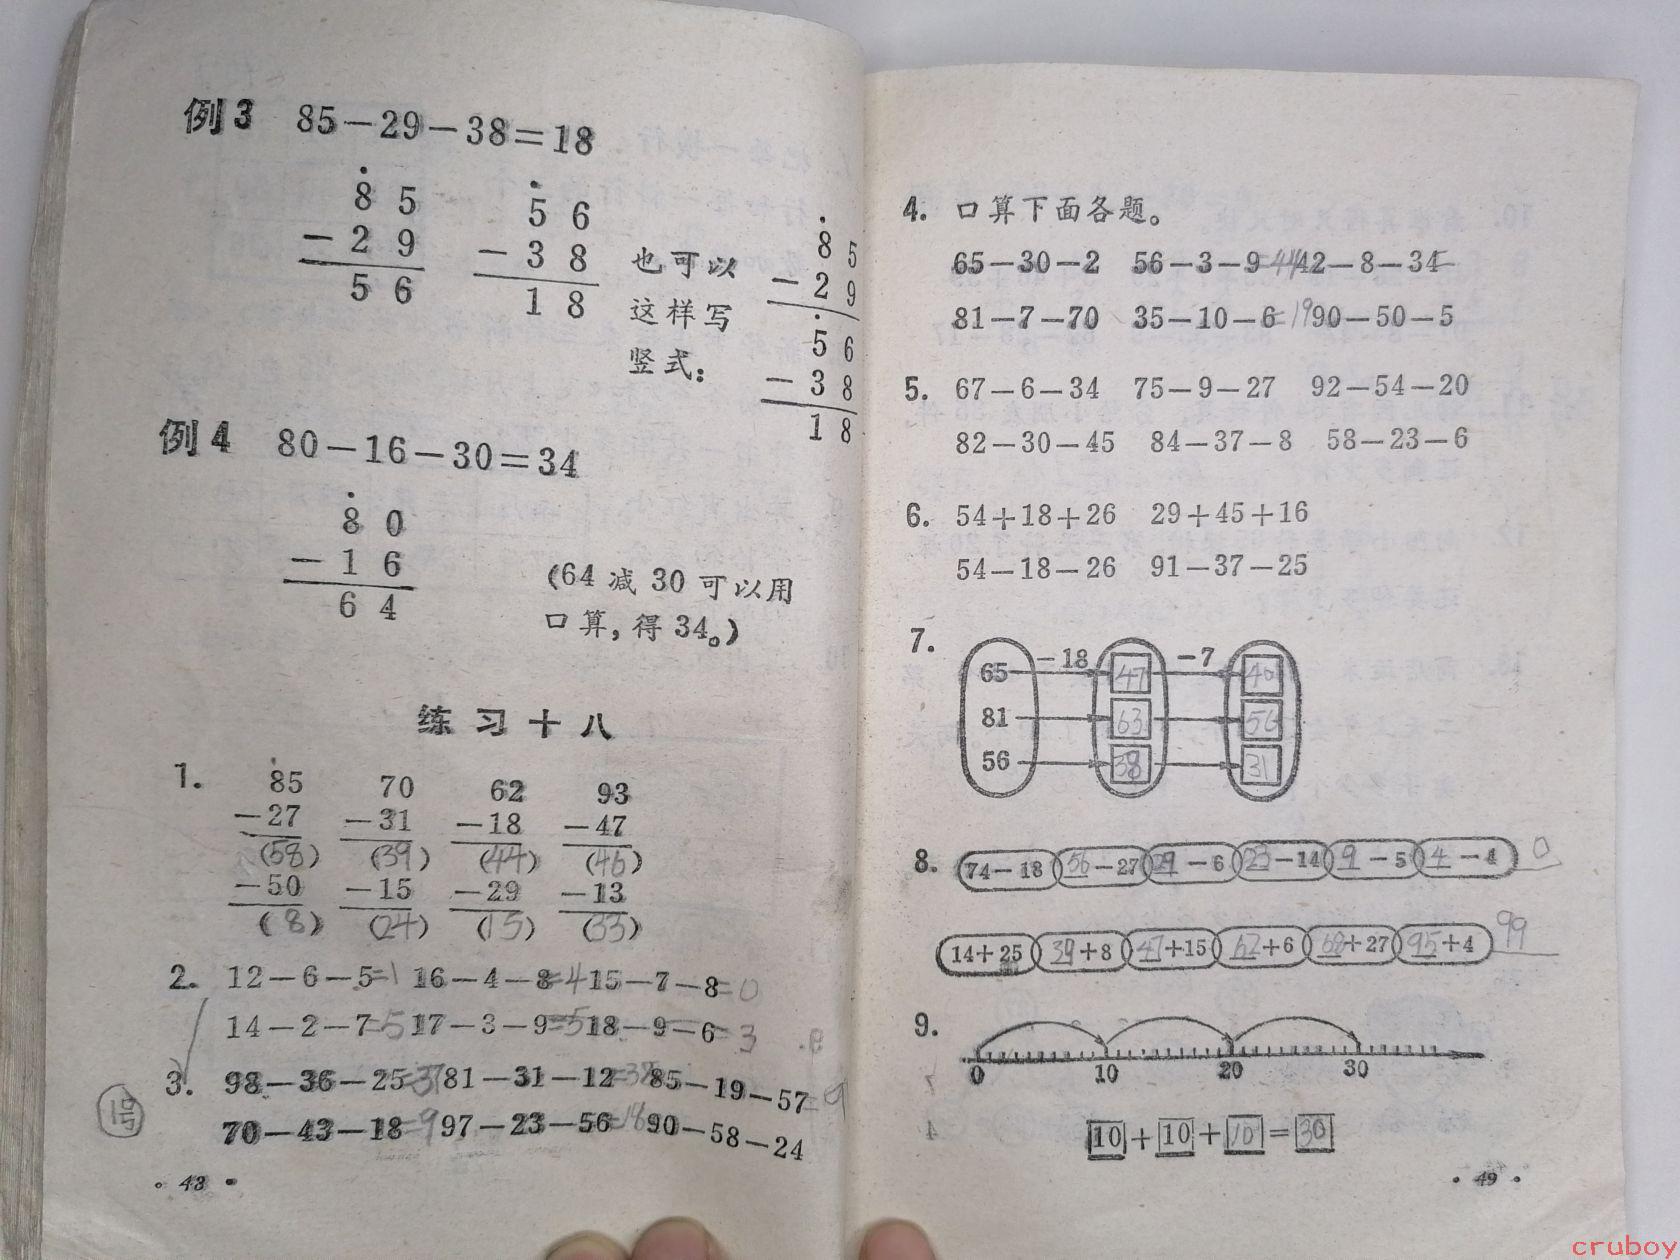 例3 85－29－38＝18
8 5
－2 9
5 6
5 6
－3 8
1 8
也可以
这样写
竖式：
8 5
－2 9
5 6
－3 8
1 8
例4 80－16－30＝34
8 0
－1 6
6 4
(64减30可以用
口算，得34。)
练习十八
1. 85 70 62 93
－27 －31 －18 －47
(58) (39) (44) (46)
－50 －15 －29 －13
(8) (24) (15) (33)
2. 12－6－5=1 16－4－8=4 15－7－8=0
14－2－7=5 17－3－9=5 18－9－6=3
3. 98－36－25=37 81－31－12=38 85－19－57=9
70－43－18=9 97－23－56=18 90－58－24
1号
43
4. 口算下面各题。
65－30－2 56－3－9=44 42－8－34
81－7－70 35－10－6=19 90－50－5
5. 67－6－34 75－9－27 92－54－20
82－30－45 84－37－8 58－23－6
6. 54＋18＋26 29＋45＋16
54－18－26 91－37－25
7. 65 －18 47 －7 40
81 63 56
56 38 31
8. 74－18 56－27 29－6 23－14 9－5 4－4 0
14＋25 39＋8 47＋15 62＋6 68＋27 95＋4 99
9.
0 10 20 30
10＋10＋10＝30
49
cruboy